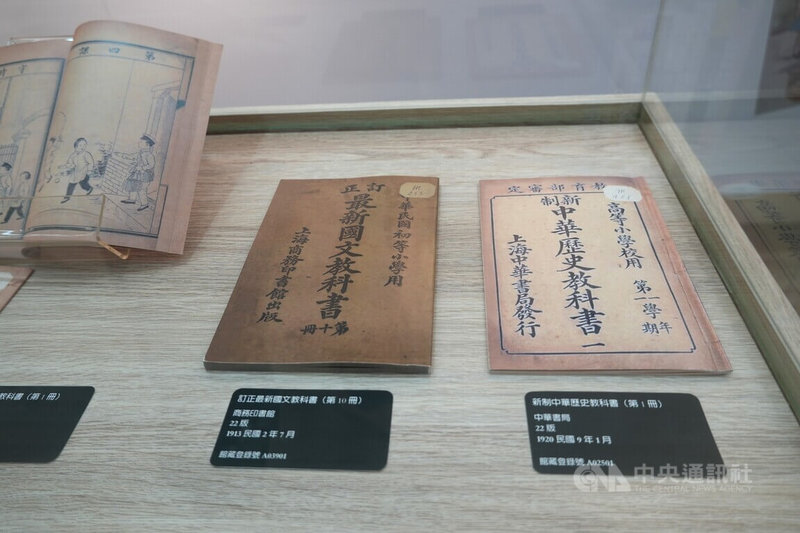 第四課
訂正
最新國文教科書
第十冊
華民國初等小學用
上海商務印書館出版
教育部審定
新制
中華歷史教科書 一
高等小學校用
第一學年
期
上海中華書局發行
教科書（第 1 冊）
訂正最新國文教科書（第 10 冊）
商務印書館
22 版
1913 民國 2 年 7 月
館藏登錄號 A03901
新制中華歷史教科書（第 1 冊）
中華書局
22 版
1920 民國 9 年 1 月
館藏登錄號 A02501
中央通訊社
CNA
THE CENTRAL NEWS AGENCY